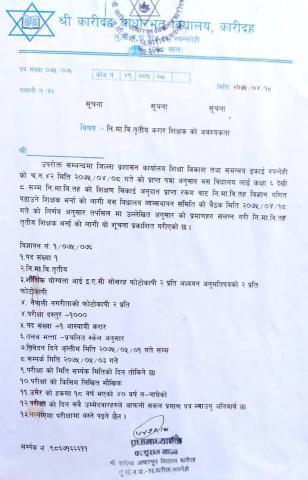 श्री कारीदह आधारभूत विद्यालय, कारीदह
पत्र संख्या ०७५/०७६
मिति: २०७५/०४/१८
चलानी नं २२
सूचना सूचना सूचना
विषय :- नि.मा.वि.तृतीय करार शिक्षक को अवश्यकता
श्री
उपरोक्त सम्वन्धमा जिल्ला प्रशासन कार्यालय शिक्षा विकास तथा समन्वय इकाई रुपन्देही
को च.न.४२ मिति २०७५/०४/०८ गते को प्राप्त पत्रा अनुसार यस विद्यालय लाई कक्षा ६ देखी
८ सम्म नि.मा.वि.तह को शिक्षण सिकाई अनुदान प्राप्त रकम बाट नि.मा.वि.तह विज्ञान गणित
पढाउने शिक्षक भर्ना को लागी यस विद्यालय व्यवस्थापन समिति को बैठक मिति २०७५/०४/१८
गते को निर्णय अनुसार तपसिल मा उल्लेखित अनुसार को प्रमाणहरु संलग्न गरी नि.मा.वि.तह
तृतीय शिक्षक भर्ना को लागी यो सूचना प्रकाशित गरीएको छ।
विज्ञापन नं: १/०७५/०७६
१.पद संख्या १
२.नि.मा.वि.तृतीय
३.शैक्षिक योग्यता आई.ए.सी सोसरह फोटोकापी २ प्रति अध्ययन अनुमतिपत्रको २ प्रति
फोटोकापी
४. नेपाली नागरीताको फोटोकापी २ प्रति
४.परीक्षा दस्तुर -१०००
५.पद संख्या -१ आस्थायी करार
६.तलब भत्ता -प्रचलित स्केल अनुसार
७.निवेदन दिने अन्तीम मिति २०७५/०५/०१ गते सम्म
८.सम्पर्क मिति २०७५/०५/०३ गते
९.परीक्षा को मिति सम्पर्क मितिको दिन तोकिने छ।
१०.परीक्षा को किसिम लिखित मौखिक
११.उमेर को हकमा १८ वर्ष भएको ४० वर्ष न-नाघेको
१२.परीक्षा को दिन सबै उम्मेदवारहरुले आफ्नो सकल प्रमाण पत्र ल्याउनु अनिवार्य छ।
सम्पर्क नं .९८६७१६६६११
प्रधानाध्यापक